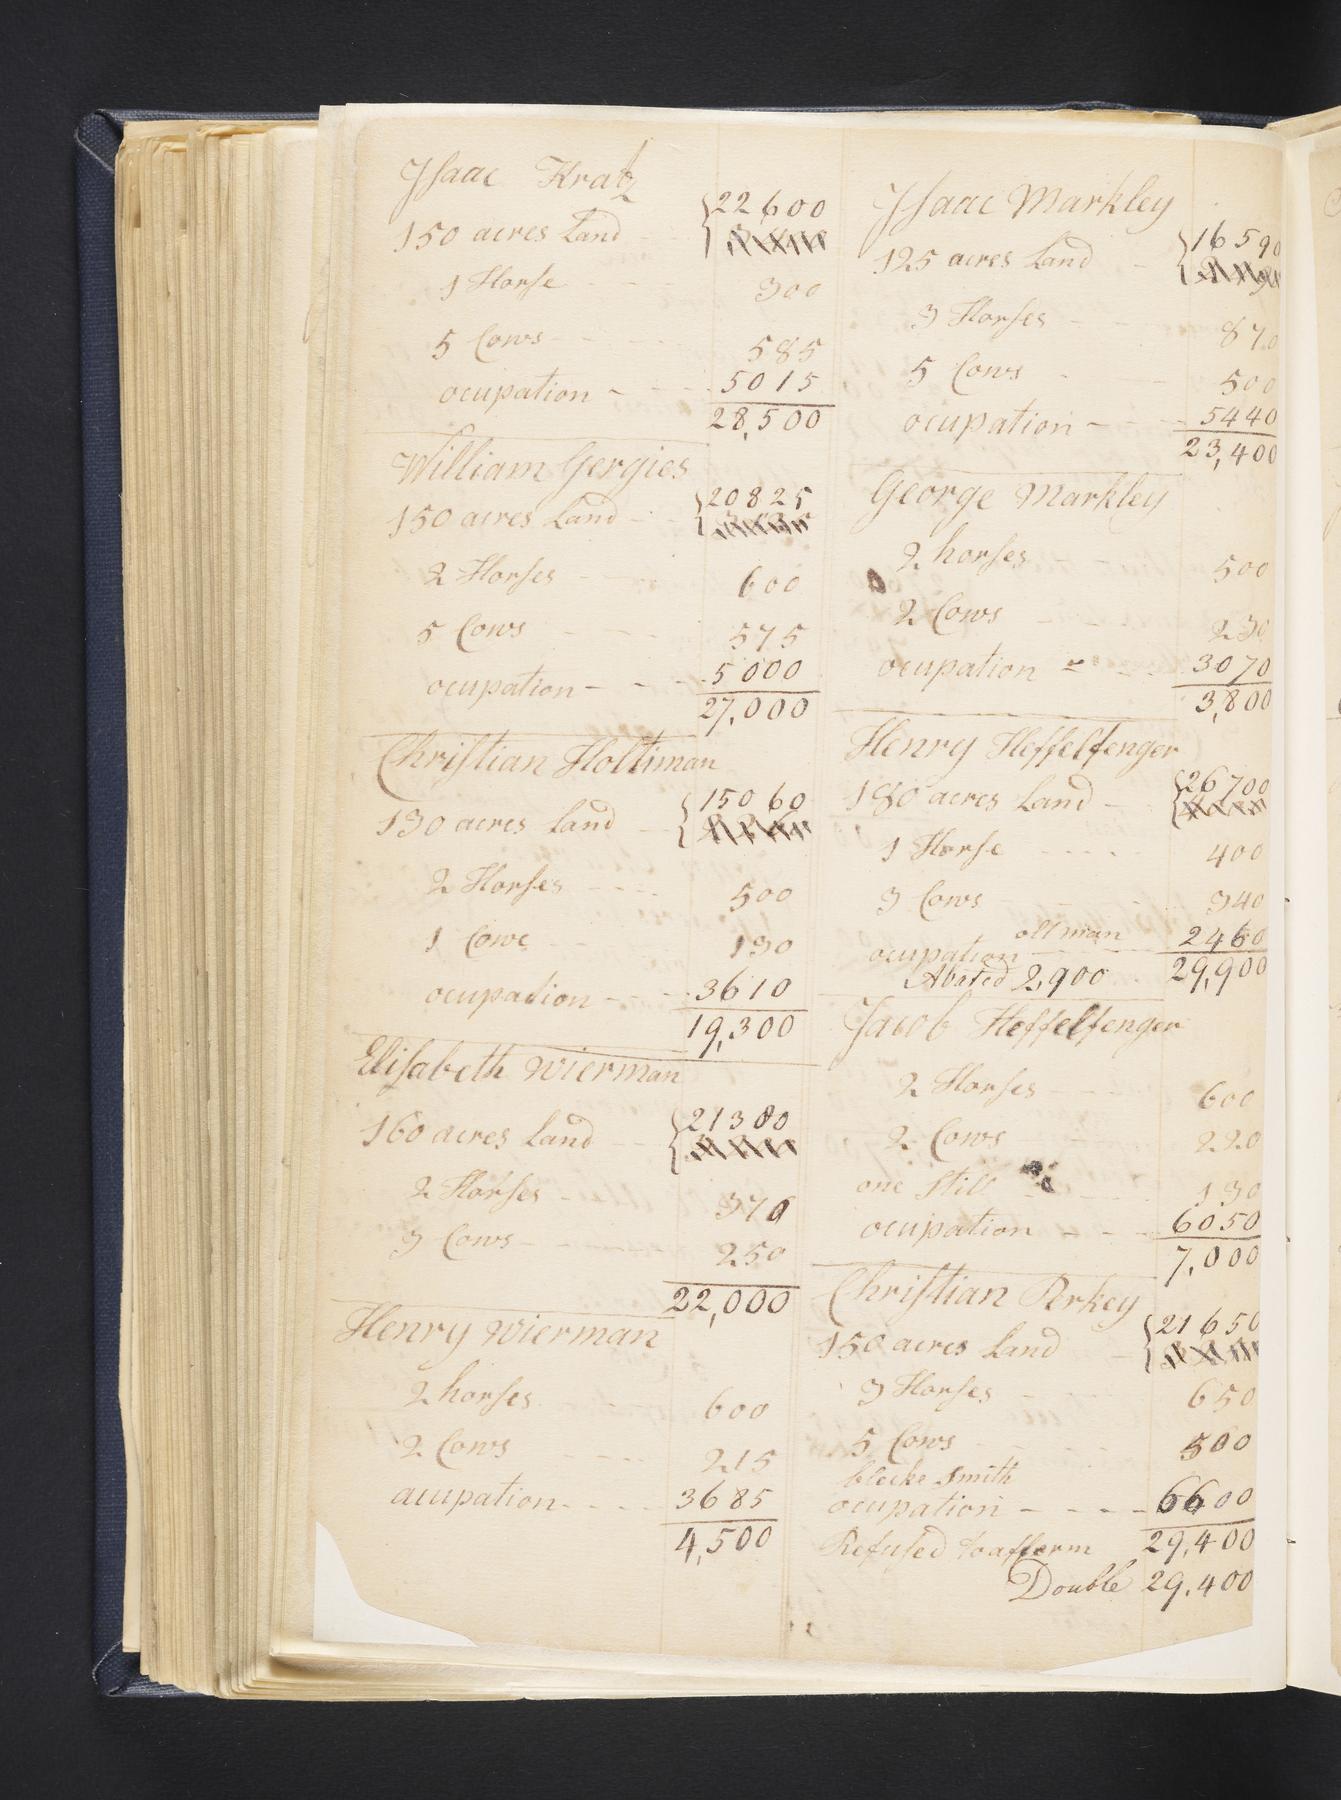 Isaac Kratz
150 acres Land - - {22600
1 Horse - - - 300
5 Cows - - - 585
ocupation - - - 5015
28,500
William Gergies
150 acres Land - - {20825
2 Horses - - - 600
5 Cows - - - 575
ocupation - - - 5000
27,000
Christian Holtiman
130 acres Land - {15060
2 Horses - - - 500
1 Cowe - - 130
ocupation - - 3610
19,300
Elisabeth Wierman
160 acres Land - - {21380
2 Horses - 370
3 Cows - - - 250
22,000
Henry Wierman
2 horses 600
2 Cows - - - 215
acupation - - - - 3685
4,500
Isaac Markley
125 acres Land - {16590
3 Horses - - 870
5 Cows - - 500
ocupation - - - 5440
23,400
George Markley
2 horses - - 500
2 Cows - - 230
ocupation - - - 3070
3,800
Henry Heffelfenger
180 acres Land - {26700
1 Horse - - - - 400
3 Cows - - - 340
olt man
ocupation - - - 2460
Abated 2,900 29,900
Jacob Heffelfenger
2 Horses - - - 600
2 Cows - - 220
one Still - - - - 130
ocupation - - - 6050
7,000
Christian Perkey
150 acres Land - {21650
3 Horses - - - 650
5 Cows - - - 500
blecke Smith
ocupation - - - - 6600
Refused to afferm 29,400
Double 29,400